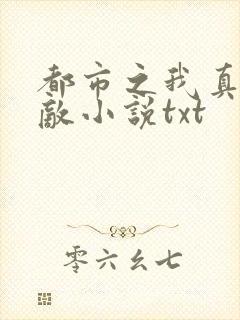 都市之我真
敵小說txt
零六幺七